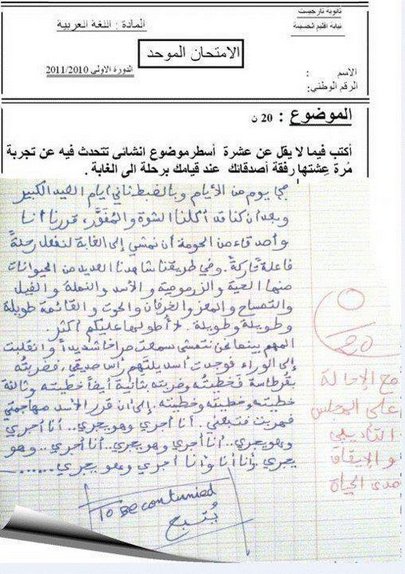 ثانوية تارجيست
نيابة اقليم الحسيمة
المادة : اللغة العربية
الامتحان الموحد
الدورة الاولى 2011/2010
الاسم :
الرقم الوطني :
الموضوع : 20 ن
أكتب فيما لا يقل عن عشرة أسطر موضوع انشائي تتحدث فيه عن تجربة
مُرة عِشتها رفقة أصدقائك عند قيامك برحلة الى الغابة .
في يوم من الأيام وبالضبط ثاني أيام العيد الكبير
وبعد أن كنا قد أكلنا الشوة والمفور، قررنا أنا
وأصدقاء من الحومة أن نمشي إلى الغابة لنفعل رحلة
فاعلة تاركة. وفي طريقنا شاهدنا العديد من الحيوانات
منها الحية والزرمومية والأسد والنملة والفيل
والتمساح والمعز والخرفان والحوت والقائمة طويلة
وطويلة وطويلة. لا أطولها عليكم أكثر.
المهم بينما نحن نتمشى سمعت صراخا شديدا وانقلبت
إلى الوراء فوجدت أسد يلتهم رأس صديقي، فضربته
بقرطاسة فخطيته وضربته بثانية أيضا خطيته وثالثة
خطيته وخطيته وخطيته. إلى أن قرر الأسد مهاجمتي
فهربت فتبعني. أنا أجري وهو يجري.. أنا أجري
وهو يجري.. أنا أجري وهو يجري.. أنا أجري.. وهو
يجري. أنا أنا وأنا أجري وهو يجري......
To be contunied
يُتبع
0
20
مع الإحالة
على المجلس
التأديبي
والإيقاف
مدى الحياة